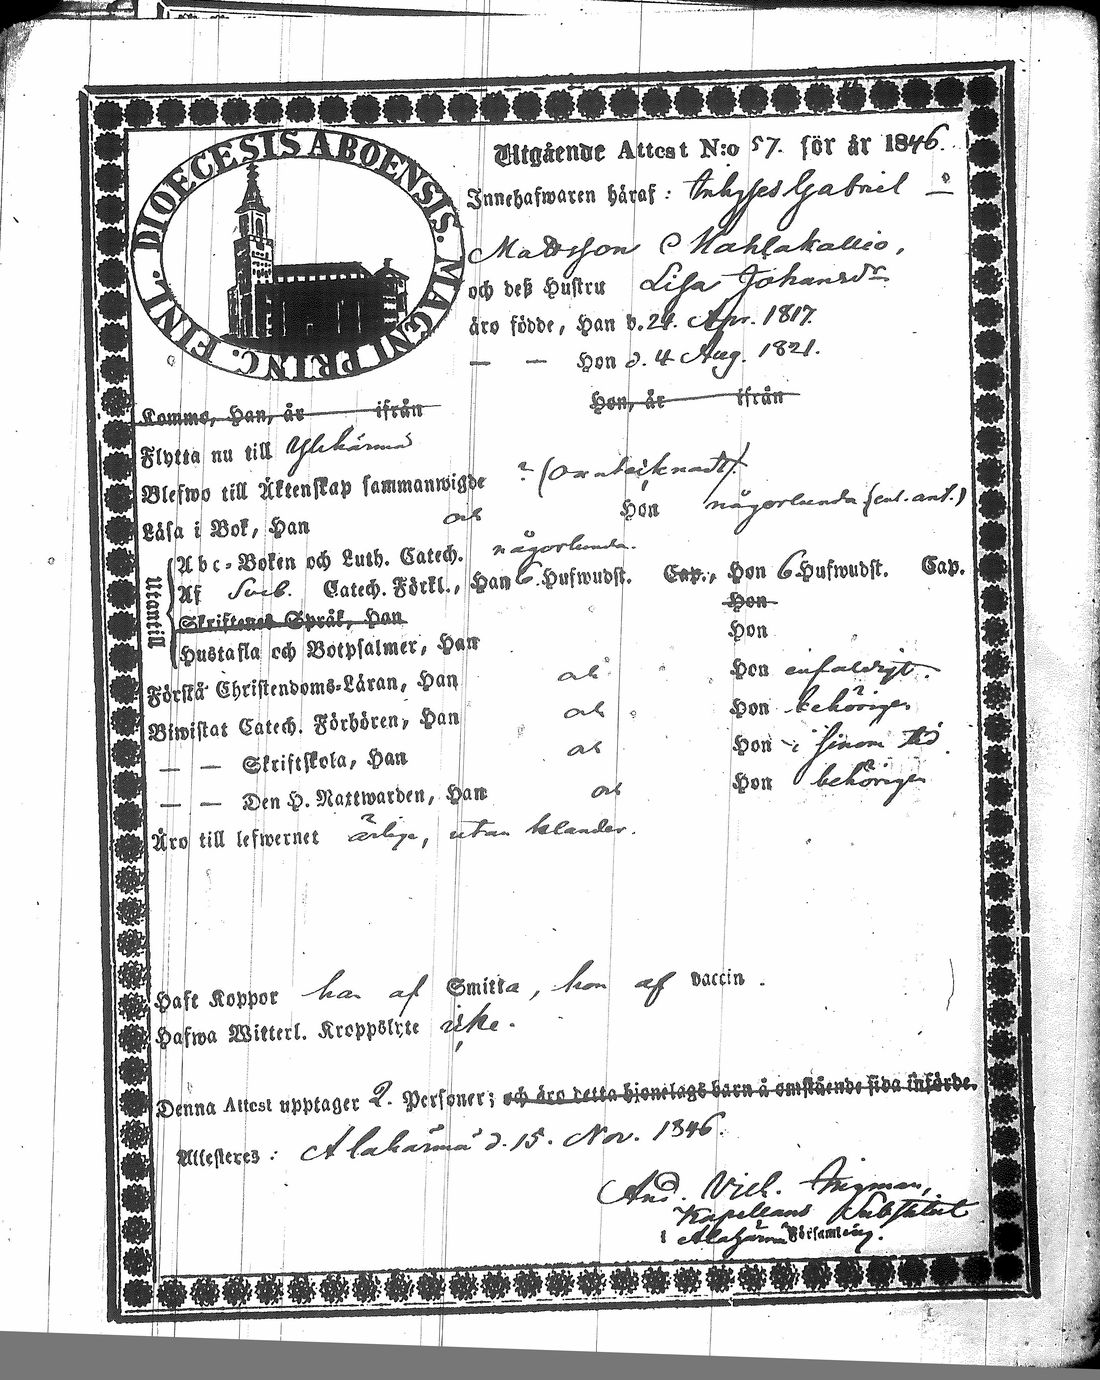 DIOECESIS ABOENSIS. MAGNI PRINC. FINL.
Utgående Attest N:o 57. för år 1846.
Innehafwaren häraf: Inhyses Gabriel
Mattsson Mahlakallio,
och deß Hustru Lisa Johansdr
äro födde, Han d. 24. Apr. 1817.
— — Hon d. 4 Aug. 1821.
Kommo, Han, år ifrån Hon, år ifrån
Flytta nu till Ylihärmä
Blefwo till Äktenskap sammanwigde ? (oantecknadt).
Läsa i Bok, Han och Hon någorlunda (enl. ant.)
Utantill
Abc-Boken och Luth. Catech. någorlunda.
Af Sveb. Catech. Förkl., Han 6. Hufwudst. Cap., Hon 6 Hufwudst. Cap.
Skriftenes Språk, Han Hon
Hustafla och Botpsalmer, Han Hon
Förstå Christendoms-Läran, Han och Hon enfaldigt.
Biwistat Catech. Förhören, Han och Hon behörigen
— — Skriftskola, Han och Hon i sinom tid.
— — Den H. Nattwarden, Han och Hon behörigen
Äro till lefwernet ärlige, utan klander.
Haft Koppor han af Smitta, hon af vaccin.
Hafwa Witterl. Kroppslyte icke.
Denna Attest upptager 2. Personer; och äro detta hjonelags barn å omstående sida införde.
Attesteres: Alahärmä d. 15. Nov. 1846.
And. Vilh. Ingman,
Kapellans Substitut
i Alahärmä Församling.